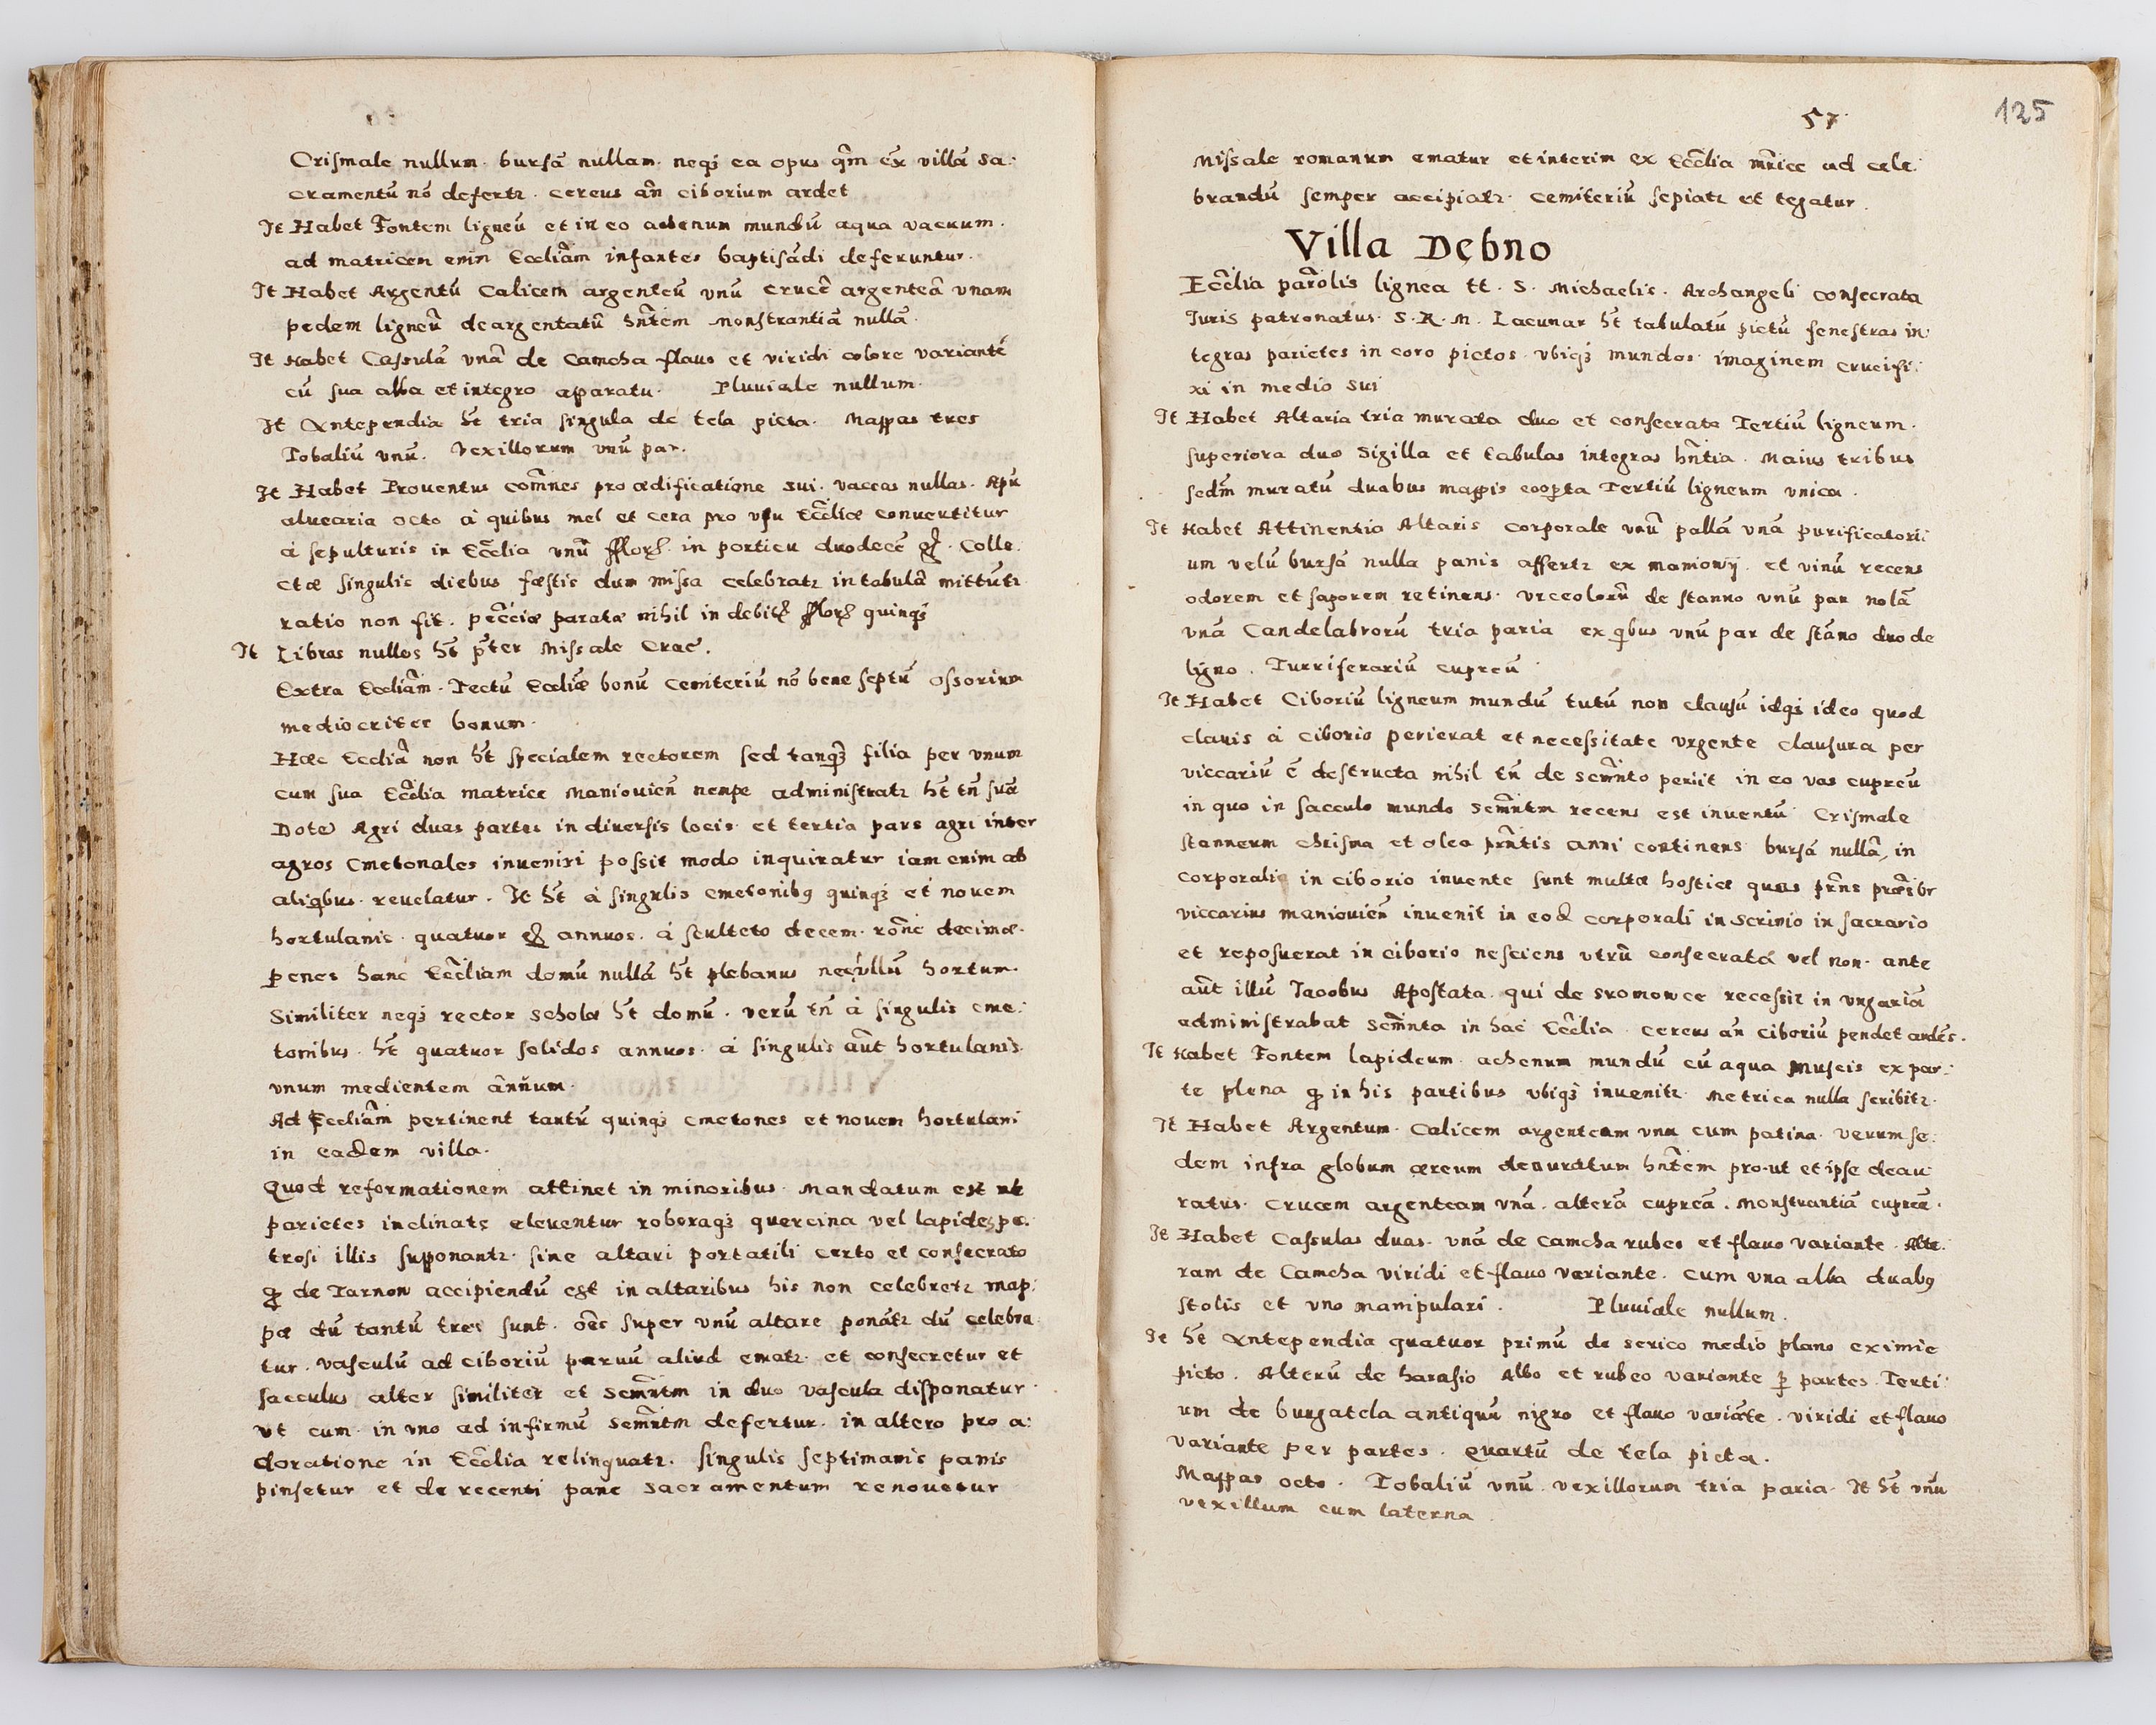 Crismale nullum. bursā nullam. neqȝ ea opus qm̃ ex villā sa:
cramentū nō defertꝛ. cereus añ ciborium ardet
It Habet Fontem ligneū et in eo achenum mundū aqua vacuum.
ad matricem enim Eccliãm infantes baptisādi deferuntur.
It Habet Argentū Calicem argenteū vnū crucē argenteā vnam
pedem ligneū deargentatū hñtem Monstrantiā nullā.
It Habet Cassulā vnā de Camcha flauo et viridi colore variantē
cū sua alba et integro aparatu. Pluuiale nullum.
It Antependia ht̃ tria singula de tela picta. Mappas tres
Tobaliū vnū. Vexillorum vnū par.
It Habet Prouentus com̃nes pro ædificatione sui. vaccas nullas. Apū
aluearia octo à quibus mel et cera pro vsu Eccliæ conuertitur
à sepulturis in Ecclia vnū in porticu duodecē Colle:
ctæ singulis diebus fæstis dum missa celebratꝛ in tabulā mittūtꝛ
ratio non fit. pecc̃iæ paratæ nihil in debitꝭ quinqȝ
It Libros nullos ht̃ p̃ter Missale Crac̃.
Extra Eccliãm. Tectū Eccliæ bonū Cemiteriū nō bene septū ossorium
mediocriter bonum.
Hæc Eccliã non ht̃ specialem rectorem sed tanqȝ filia per vnum
cum sua Ecclia matrice Maniouieñ nempe administratꝛ ht̃ tñ suā
Dotē Agri duas partes in diuersis locis et tertia pars agri inter
agros Cmetonales inueniri possit modo inquiratur iam enim ab
aliqbus reuelatur. It ht̃ à singulis cmetonibꝰ quinqȝ et nouem
hortulanis quatuor annuos. à sculteto decem. rõne decimæ.
penes hanc Eccliam domū nullā ht̃ plebanus nec vllū hortum.
Similiter neqȝ rector scholæ ht̃ domū. verū tñ à singulis cme:
tonibus. ht̃ quatuor solidos annuos. à singulis aũt hortulanis
vnum medientem añnum.
Ad Eccliãm pertinent tantū quinqȝ cmetones et nouem hortulani
in eadem villa.
Quod reformationem attinet in minoribus. Mandatum est ut
parietes inclinatę eleuentur roboraqȝ quercina vel lapides pe:
trosi illis supponantꝛ. sine altari portatili certo et consecrato
de Tarnow accipiendū est in altaribus his non celebretꝛ map:
pæ dū tantū tres sunt. oẽs super vnū altare ponātꝛ dū celebra
tur. vasculū ad ciboriū paruū aliud ematꝛ et consecretur et
sacculus alter similiter et Scm̃ntm in duo vascula disponatur
vt cum in vno ad infirmū Scm̃ntm defertur. in altero pro a:
doratione in Ecclia relinquatꝛ. singulis septimanis panis
pinsetur et de recenti pane Sacramentum renouetur
57
125
Missale romanum ematur et interim ex Ecclia m̃rice ad cele:
brandū semper accipiatꝛ. Cemiteriū sepiatꝛ et tegatur.
Villa Dębno
Ecclia parõlis lignea tt. S. Michaelis. Archangeli consecrata
Iuris patronatus. S. R. M. Lacunar ht̃ tabulatū pictū fenestras in:
tegras parietes in coro pictos vbiqȝ mundos imaginem crucifi:
xi in medio sui
It Habet Altaria tria murata duo et consecrata Tertiū ligneum.
superiora duo sigilla et tabulas integras hñtia. Maius tribus
sedm̃ muratū duabus mappis cooꝑta Tertiū ligneum vnica.
It Habet Attinentia Altaris Corporale vnū pallā vnā purificatori:
um velū bursā nulla panis affertꝛ ex maniowy et vinū recens
odorem et saporem retinens. vrceolorū de stanno vnū par nolā
vnā Candelabrorū tria paria ex qbus vnū par de stāno duo de
ligno. Turriferariū cupreū
It Habet Ciboriū ligneum mundū tutū non clausū idqȝ ideo quod
clauis à ciborio perierat et necessitate vrgente clausura per
viccariū ē destructa nihil tñ de scm̃nto periit in eo vas cupreū
in quo in sacculo mundo scm̃ntm recens est inuentū Crismale
stanneum chrisma et olea pñtis anni continens bursā nullā, in
corporalis in ciborio inuente sunt multæ hostiæ quas pñs præsbr
viccarius maniouieñ inuenit in eod corporali in scrinio in sacrario
et reposuerat in ciborio nesciens vtrū consecratæ vel non. ante
aũt illū Jacobus Apostata qui de sromowce recessit in vngariā
administrabat scm̃nta in hac Ecclia. cereus añ ciboriū pendet ardēs.
It Habet Fontem lapideum. achenum mundū cū aqua muscis ex par:
te plena in his partibus vbiqȝ inuenitꝛ. Metrica nulla scribitꝛ.
It Habet Argentum. Calicem argenteam vnū cum patina. verum se:
dem infra globum æreum deauratum hñtem pro-ut et ipse deau:
ratus. Crucem argenteam vnā. alterā cupreā. Monstrantiā cupreā.
It Habet Cassulas duas. vnā de camcha rubeo et flauo variante. Alte:
ram de Camcha viridi et flauo variante. cum vna alba duabꝰ
stolis et vno manipulari. Pluuiale nullum.
It ht̃ Antependia quatuor primū de serico medio plano eximie
picto. Alterū de harasio Albo et rubeo variante ꝑ partes. Terti:
um de burgatela antiquū nigro et flauo variāte. viridi et flauo
variante per partes. Quartū de tela picta.
Mappas octo. Tobaliū vnū. vexillorum tria paria. It ht̃ vnū
vexillum cum laterna.